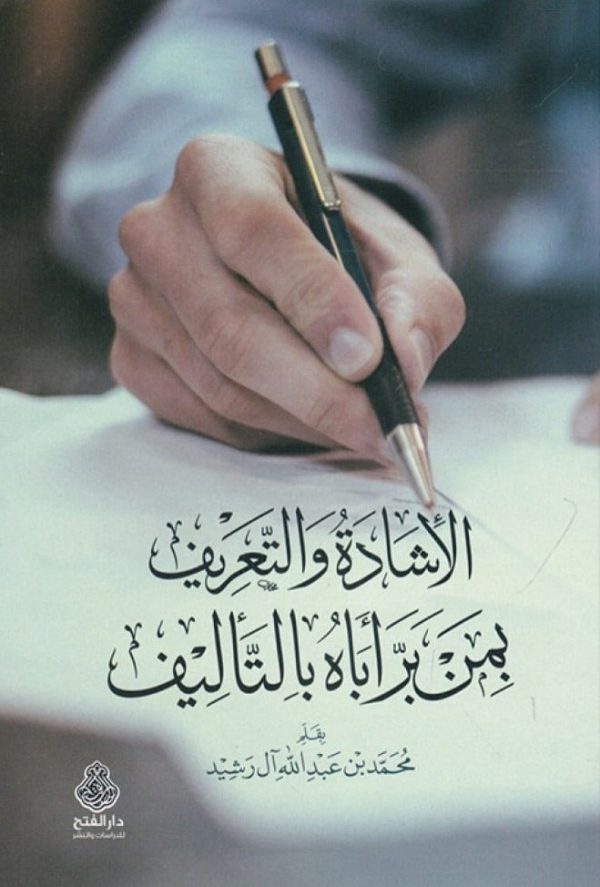 الأشادَةُ وَالتَّعرِيف
بِمَنْ بَرَّ أَبَاهُ بِالتَّأليف
بِقَلَمِ
مُحَمَّد بْن عَبْدِ اللهِ آل رَشِيْد
دار الفتح
للدراسات والنشر